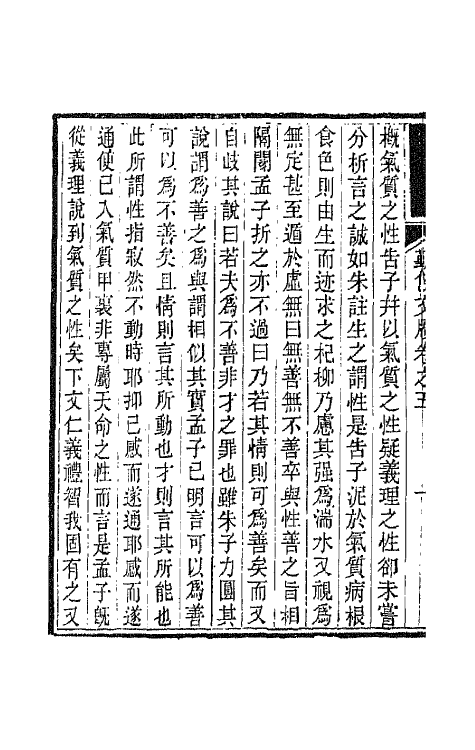 概氣質之性告子幷以氣質之性疑義理之性卻未嘗
分析言之誠如朱註生之謂性是告子泥於氣質病根
食色則由生而迹求之杞柳乃慮其强爲湍水又視爲
無定甚至遁於虛無曰無善無不善卒與性善之言相
隔閡孟子折之亦不過曰乃若其情則可爲善矣而又
自歧其說曰若夫爲不善非才之罪也雖朱子力圓其
說謂爲善之爲與謂相似其實孟子已明言可以爲善
可以爲不善矣且情則言其所動也才則言其所能也
此所謂性指寂然不動時耶抑已感而遂通耶感而遂
通便已入氣質甲裏非專屬天命之性而言是孟子旣
從義理說到氣質之性矣下文仁義禮智我固有之又
卷之五